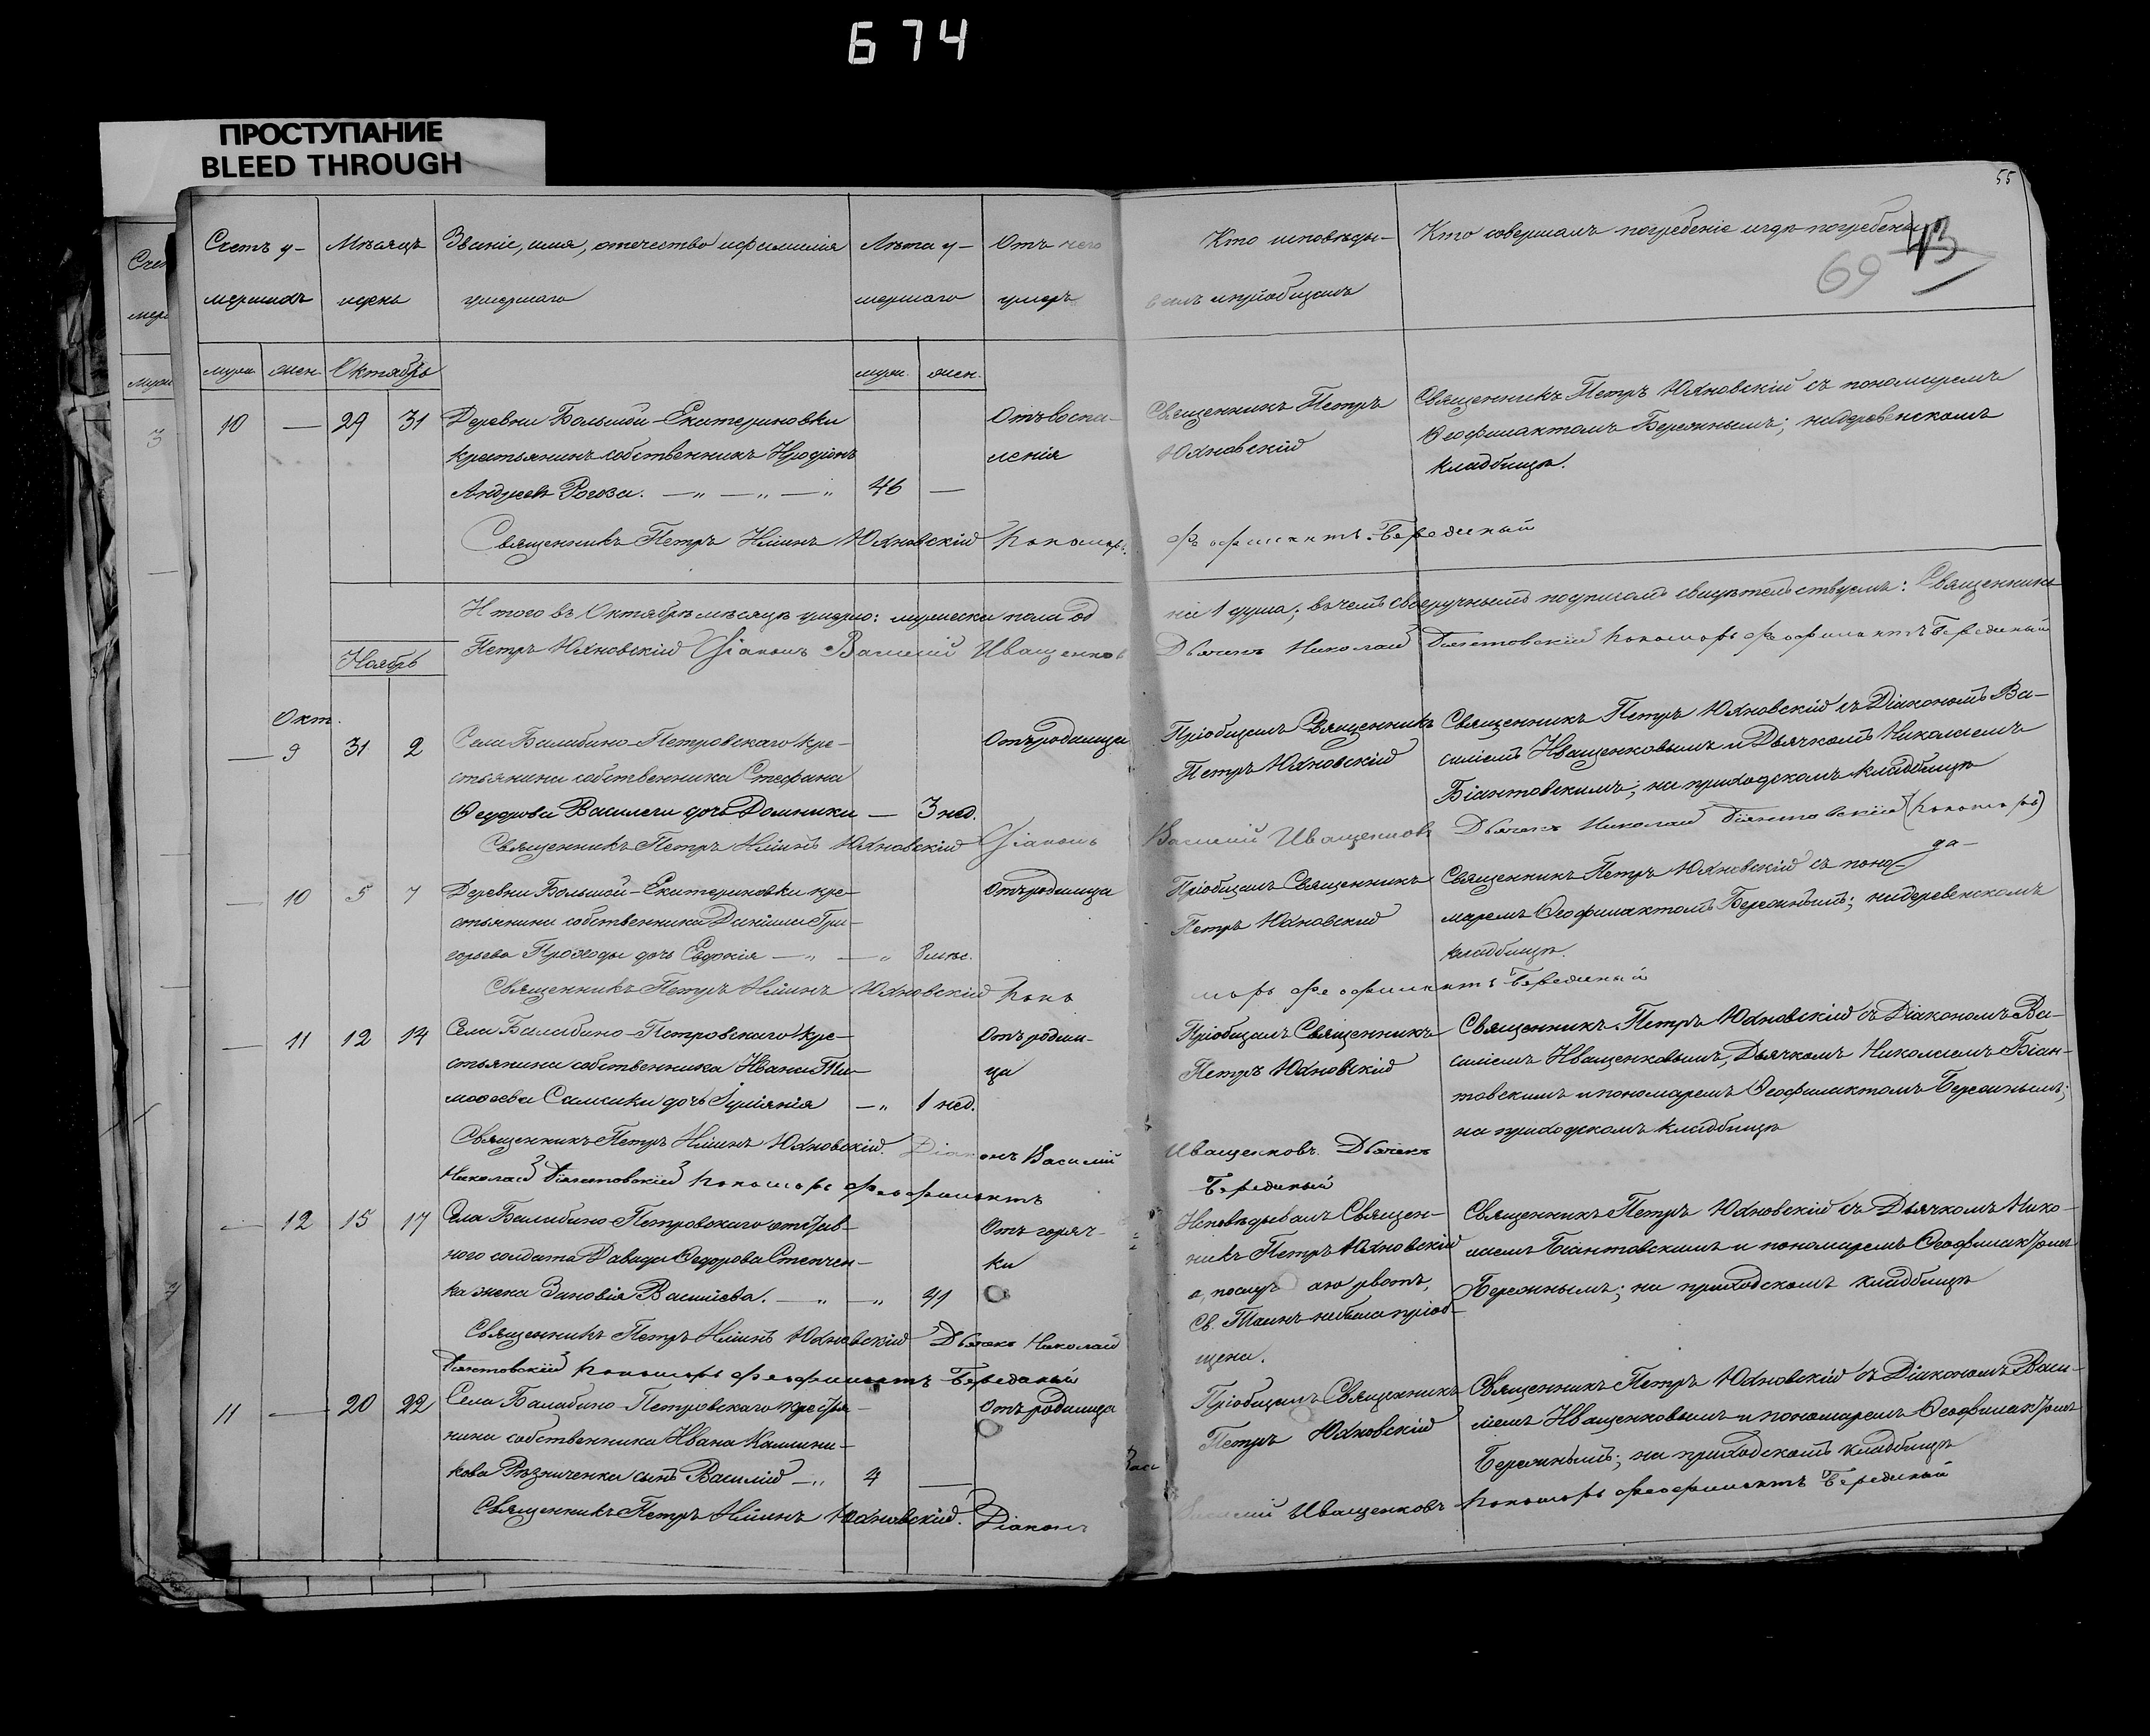 674
ПРОСТУПАНИЕ
BLEED THROUGH
55
43
69
Счетъ у-
мершихъ
Мѣсяцъ
и день
Званіе, имя, отечество и фамилія
умершаго
Лѣта у-
мершаго
Отъ чего
умеръ
Кто исповѣды-
валъ и пріобщалъ
Кто совершалъ погребеніе и гдѣ погребены
муж. жен. Октябрь муж. жен.
10 — 29 31
Деревни Большой-Екатериновки
крестьянинъ собственникъ Иродіонъ
Андреевъ Рогоза. — „ — „ — „ 46 —
Отъ воспа-
ленія
Священникъ Петръ
Юхновскій
Священникъ Петръ Юхновскій съ пономаремъ
Ѳеофилактомъ Бережнымъ; на деревенскомъ
кладбищѣ.
Священникъ Петръ Юхновскій Пономарь Феофилактъ Бережный
Итого въ Октябрѣ мѣсяцѣ умерло: мужеска пола од
на 1 душа; въ чемъ своеручнымъ подписомъ свидѣтельствуемъ: Священникъ
Петръ Юхновскій Діаконъ Василій Иващенковъ Дьячекъ Николай Біянтовскій Пономарь Феофилактъ Бережный
Ноябрь
Окт.
— 9 31 2
Села Балабино-Петровскаго кре-
стьянина собственника Стефана
Ѳедорова дочь Домникія — 3 нед.
Отъ родимца
Пріобщалъ Священникъ
Петръ Юхновскій
Священникъ Петръ Юхновскій съ Діакономъ Ва-
силіемъ Иващенковымъ и Дьячкомъ Николаемъ
Біантовскимъ; на приходскомъ кладбищѣ
Священникъ Петръ Юхновскій Діаконъ Василій Иващенковъ Дьячекъ Николай Біянтовскій (Пономарь)
— 10 5 7
Деревни Большой-Екатериновки кре-
стьянина собственника Даніила Гри-
горьева дочь Евдокія — „ — „
Отъ родимца
Пріобщалъ Священникъ
Петръ Юхновскій
Священникъ Петръ Юхновскій съ поно-
маремъ Ѳеофилактомъ Бережнымъ; на деревенскомъ
кладбищѣ.
Священникъ Петръ Юхновскій Пономарь Феофилактъ Бережный
— 11 12 14
Села Балабино-Петровскаго кре-
стьянина собственника Ивана Ти-
моѳеева дочь — „ 1 нед.
Отъ родим-
ца
Пріобщалъ Священникъ
Петръ Юхновскій
Священникъ Петръ Юхновскій съ Діакономъ Ва-
силіемъ Иващенковымъ, Дьячкомъ Николаемъ Біан-
товскимъ и пономаремъ Ѳеофилактомъ Бережнымъ;
на приходскомъ кладбищѣ
Священникъ Петръ Юхновскій. Діаконъ Василій Иващенковъ. Дьячекъ
Николай Біянтовскій Пономарь Феофилактъ Бережный
— 12 15 17
Села Балабино-Петровскаго отстав-
ного солдата Давида Ѳедорова Степчен-
ка жена Зиновія Васильева. — „ — „ 41
Отъ горяч-
ки
Исповѣдывалъ Священ-
никъ Петръ Юхновскій
а, рвотъ,
Св. Таинъ не была пріоб-
щена.
Священникъ Петръ Юхновскій съ Дьячкомъ Нико-
лаемъ Біантовскимъ и пономаремъ Ѳеофилактомъ
Бережнымъ; на приходскомъ кладбищѣ
Священникъ Петръ Юхновскій Дьячекъ Николай
Біянтовскій Пономарь Феофилактъ Бережный
11 — 20 22
Села Балабино-Петровскаго крестья-
нина собственника Ивана Каллини-
кова Рѣзниченка сынъ Василій — „ 4 —
Отъ родимца
Пріобщалъ Священникъ
Петръ Юхновскій
Священникъ Петръ Юхновскій съ Діакономъ Васи-
ліемъ Иващенковымъ и пономаремъ Ѳеофилактомъ
Бережнымъ; на приходскомъ кладбищѣ
Священникъ Петръ Юхновскій. Діаконъ Василій Иващенковъ Пономарь Феофилактъ Бережный